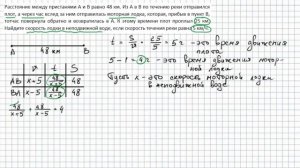 Расстояние между пристанями А и В равно 48 км. Из А в В по течению реки отправился
плот, а через час вслед за ним отправилась моторная лодка, которая, прибыв в пункт В,
тотчас повернула обратно и возвратилась в А. К этому времени плот проплыл 25 км.
Найдите скорость лодки в неподвижной воде, если скорость течения реки равна 5 км/ч.
A B
48 км
t = S/v = 25/5 = 5 ч - это время движения
плота
5 - 1 = 4 ч - это время движения мотор-
ной лодки
Пусть x - это скорость моторной лодки
в неподвижной воде.
v t S
AB x+5 48/x+5 48
BA x-5 48/x-5 48
48/x+5 + 48/x-5 = 4